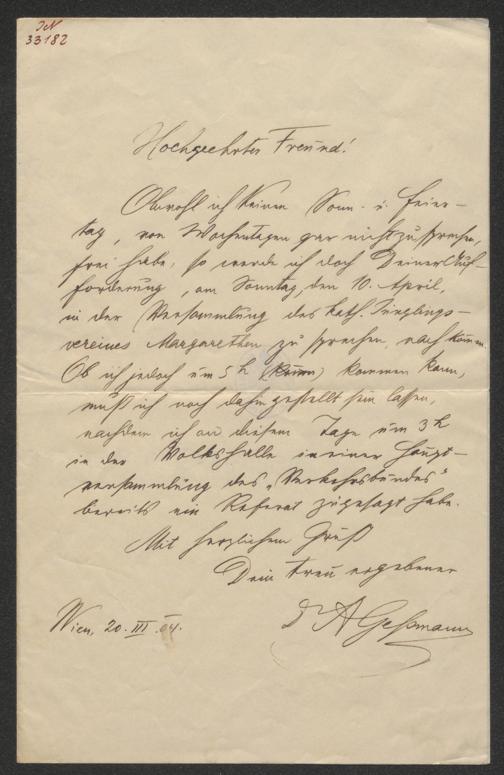 IN
33182
Hochgeehrter Freund!
Obwohl ich keinen Sonn- u. Feier-
tag, von Wochentagen gar nicht zu sprechen,
frei habe, so werde ich doch Deiner Auf-
forderung, am Sonntag, den 10. April,
in der Versammlung des kath. Jünglings-
vereines Margarethen zu sprechen, nachkommen.
Ob ich jedoch um 5 h (kann) kommen kann,
muß ich noch dahin gestellt sein lassen,
nachdem ich an diesem Tage um 3 h
in der Volkshalle in einer Haupt-
versammlung des „Verkehrsbundes"
bereits ein Referat zugesagt habe.
Mit herzlichem Gruß
Dein treu ergebener
Dr A Geßmann
Wien, 20. III. 04.